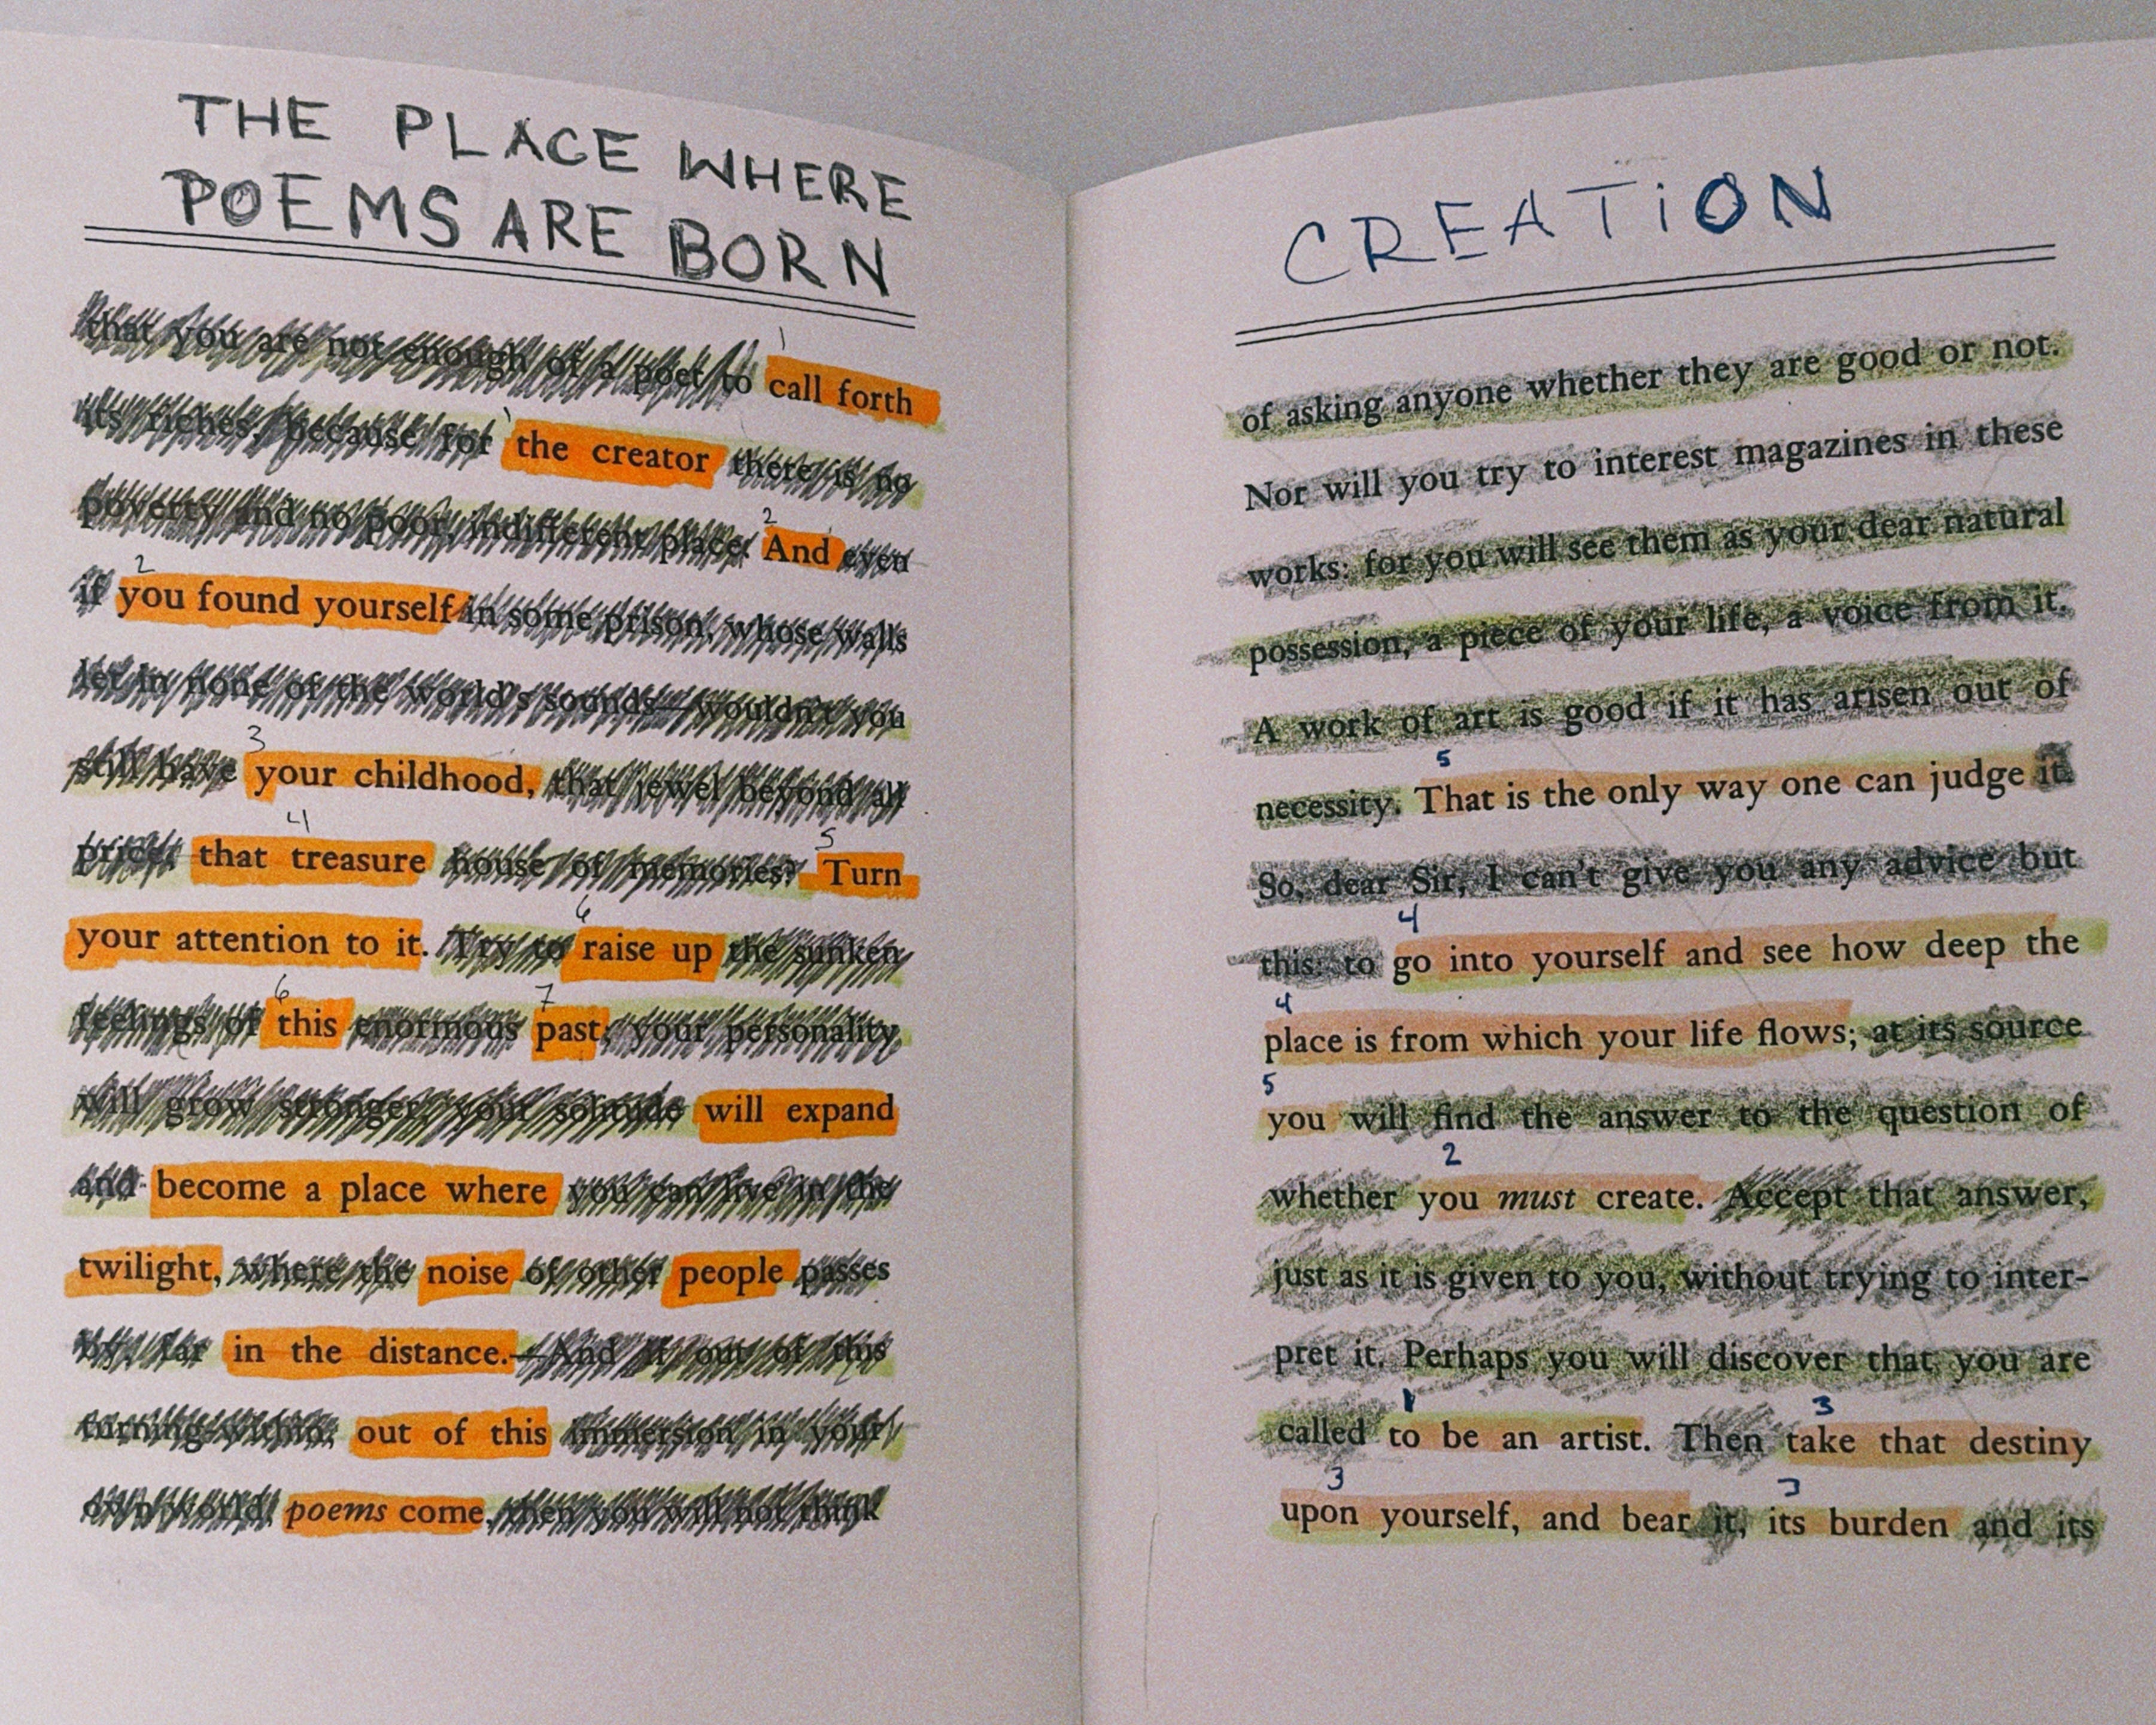 THE PLACE WHERE
POEMS ARE BORN
that you are not enough of a poet to call forth
its riches, because for the creator there is no
poverty and no poor, indifferent place. And even
if you found yourself in some prison, whose walls
let in none of the world's sounds—wouldn't you
still have your childhood, that jewel beyond all
price, that treasure house of memories? Turn
your attention to it. Try to raise up the sunken
feelings of this enormous past; your personality
will grow stronger, your solitude will expand
and become a place where you can live in the
twilight, where the noise of other people passes
by, far in the distance.—And if out of this
turning-within, out of this immersion in your
own world, poems come, then you will not think
1
1
2
2
3
4
5
6
6
7
CREATiON
of asking anyone whether they are good or not.
Nor will you try to interest magazines in these
works: for you will see them as your dear natural
possession, a piece of your life, a voice from it.
A work of art is good if it has arisen out of
5
necessity. That is the only way one can judge it.
So, dear Sir, I can't give you any advice but
4
this: to go into yourself and see how deep the
4
place is from which your life flows; at its source
5
you will find the answer to the question of
2
whether you must create. Accept that answer,
just as it is given to you, without trying to inter-
pret it. Perhaps you will discover that you are
1 3
called to be an artist. Then take that destiny
3 3
upon yourself, and bear it, its burden and its